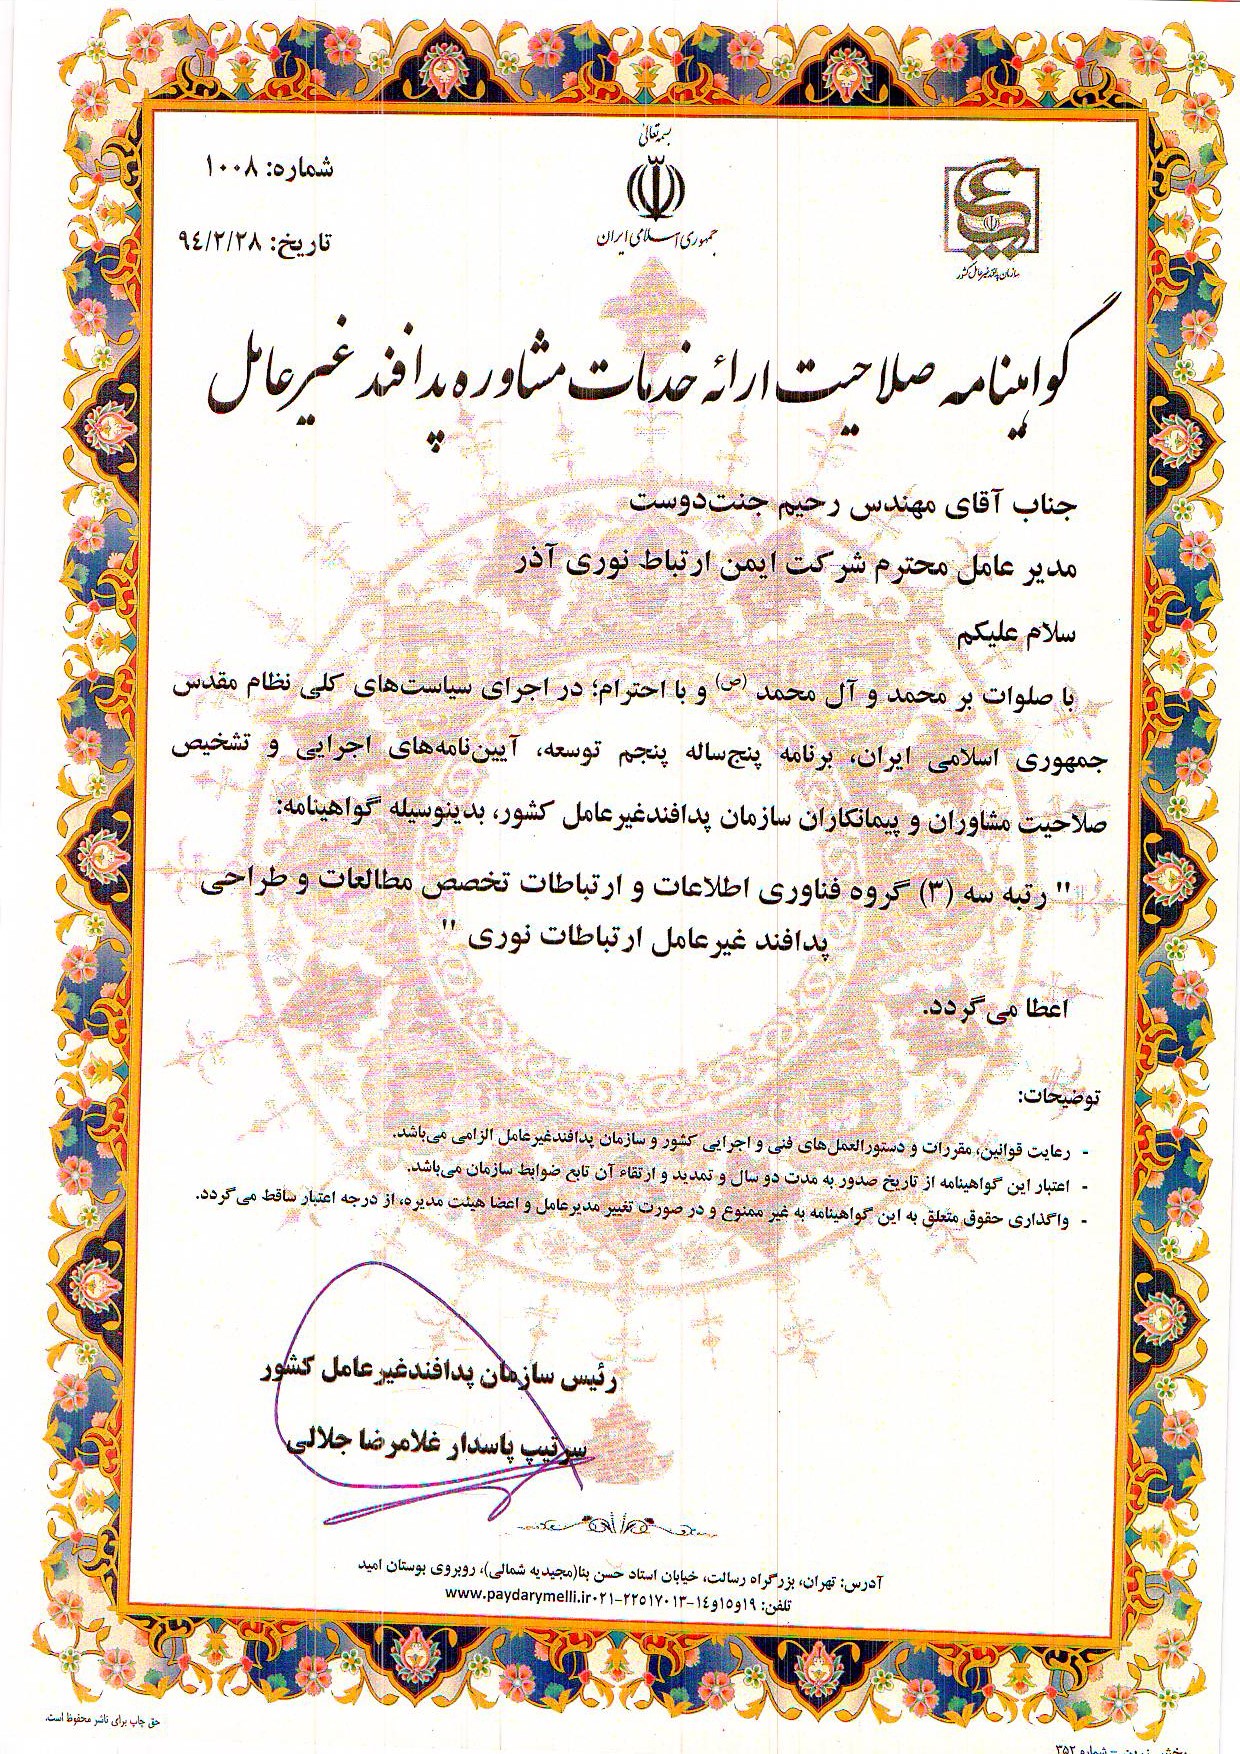 بسمه تعالی
جمهوری اسلامی ایران
سازمان پدافند غیرعامل کشور
شماره: ۱۰۰۸
تاریخ: ۹٤/۲/۲۸
گواهینامه صلاحیت ارائه خدمات مشاوره پدافند غیرعامل
جناب آقای مهندس رحیم جنت‌دوست
مدیر عامل محترم شرکت ایمن ارتباط نوری آذر
سلام علیکم
با صلوات بر محمد و آل محمد (ص) و با احترام؛ در اجرای سیاست‌های کلی نظام مقدس
جمهوری اسلامی ایران، برنامه پنج‌ساله پنجم توسعه، آیین‌نامه‌های اجرایی و تشخیص
صلاحیت مشاوران و پیمانکاران سازمان پدافندغیرعامل کشور، بدینوسیله گواهینامه:
" رتبه سه (۳) گروه فناوری اطلاعات و ارتباطات تخصص مطالعات و طراحی
پدافند غیرعامل ارتباطات نوری "
اعطا می‌گردد.
توضیحات:
- رعایت قوانین، مقررات و دستورالعمل‌های فنی و اجرایی کشور و سازمان پدافندغیرعامل الزامی می‌باشد.
- اعتبار این گواهینامه از تاریخ صدور به مدت دو سال و تمدید و ارتقاء آن تابع ضوابط سازمان می‌باشد.
- واگذاری حقوق متعلق به این گواهینامه به غیر ممنوع و در صورت تغییر مدیرعامل و اعضا هیئت مدیره، از درجه اعتبار ساقط می‌گردد.
رئیس سازمان پدافندغیرعامل کشور
سرتیپ پاسدار غلامرضا جلالی
آدرس: تهران، بزرگراه رسالت، خیابان استاد حسن بنا(مجیدیه شمالی)، روبروی بوستان امید
تلفن: ۱۹و۱۵و۱٤-۰۲۱-۲۲۵۱۷۰۱۳ www.paydarymelli.ir
حق چاپ برای ناشر محفوظ است.
شماره ۳۵۲